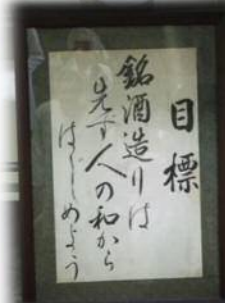 目標
銘酒造りは
先ず人の和から
はじめよう